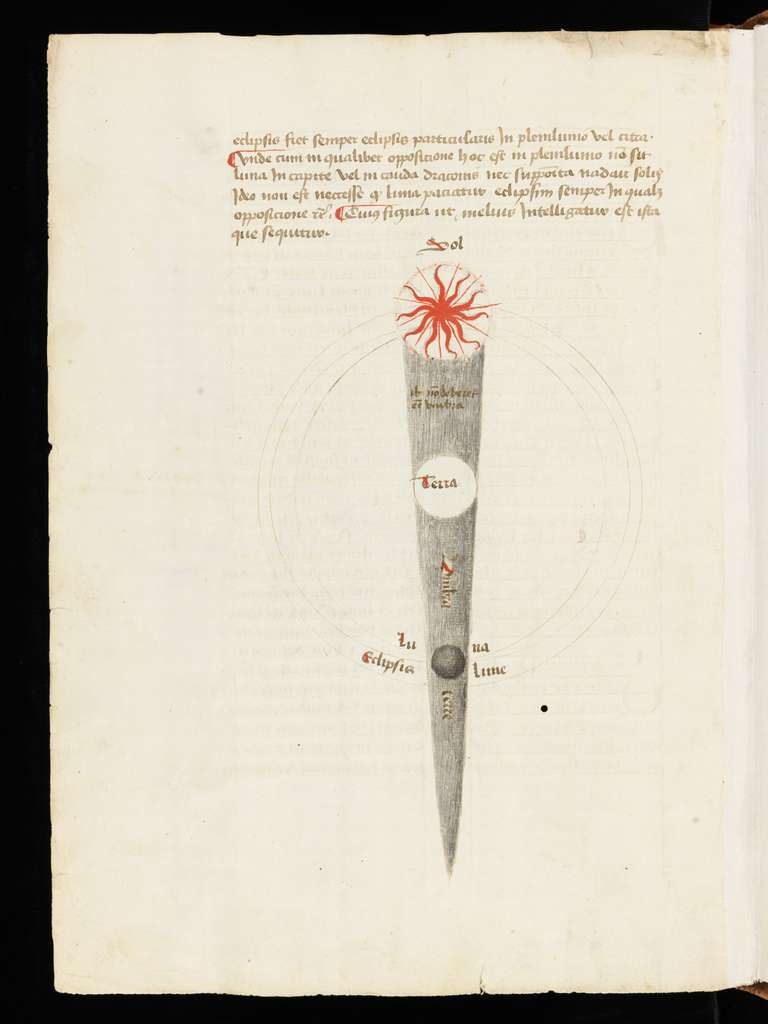 eclipsis fiet semper eclipsis particularis In plenilunio vel citra.
Unde cum in qualibet oppositione hoc est in plenilunio nō sit
luna In capite vel in cauda draconis nec supposita nadair solis
Ideo non est necesse q luna paciatur eclipsim semper In qualȝ
oppositione rc̄. Cuius figura ut melius Intelligatur est ista
que sequitur.
Sol
nō deberet
umbra
Terra
Umbra
Lu na
Eclipsis Lune
terre